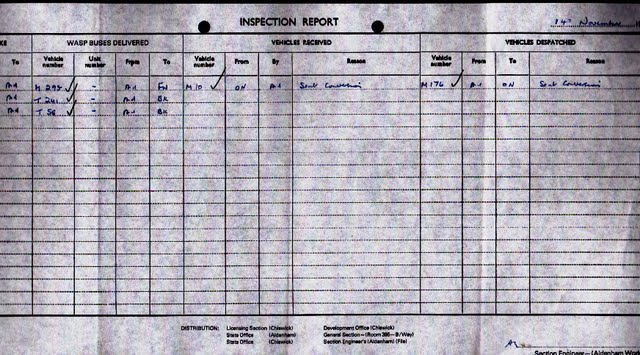 INSPECTION REPORT
14th November
KE WASP BUSES DELIVERED VEHICLES RECEIVED VEHICLES DISPATCHED
To Vehicle number Unit number From To Vehicle number From By Reason Vehicle number From To Reason
Ad M 295 ✓ - Ad FW M 10 ✓ ON Ad Seat Conversion M176 ✓ Ad ON Seat Conversion
Ad T 241 ✓ - Ad BK
Ad T 58 ✓ - Ad BK
DISTRIBUTION: Licensing Section (Chiswick) Development Office (Chiswick)
Stats Office (Aldenham) General Section—(Room 395—B/Way)
Stats Office (Chiswick) Section Engineer's (Aldenham) (File)
Section Engineer—(Aldenham Wor